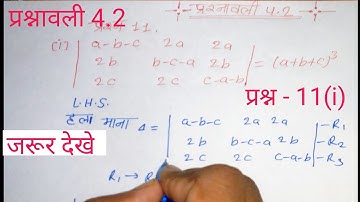 प्रश्नावली 4.2
प्रश्नावली 4.2
प्रश्न 11.
(i) | a-b-c 2a 2a |
| 2b b-c-a 2b | = (a+b+c)³
| 2c 2c c-a-b |
प्रश्न - 11(i)
L.H.S.
हल: माना Δ = | a-b-c 2a 2a | -R₁
| 2b b-c-a 2b | -R₂
| 2c 2c c-a-b | -R₃
जरूर देखे
R₁ →